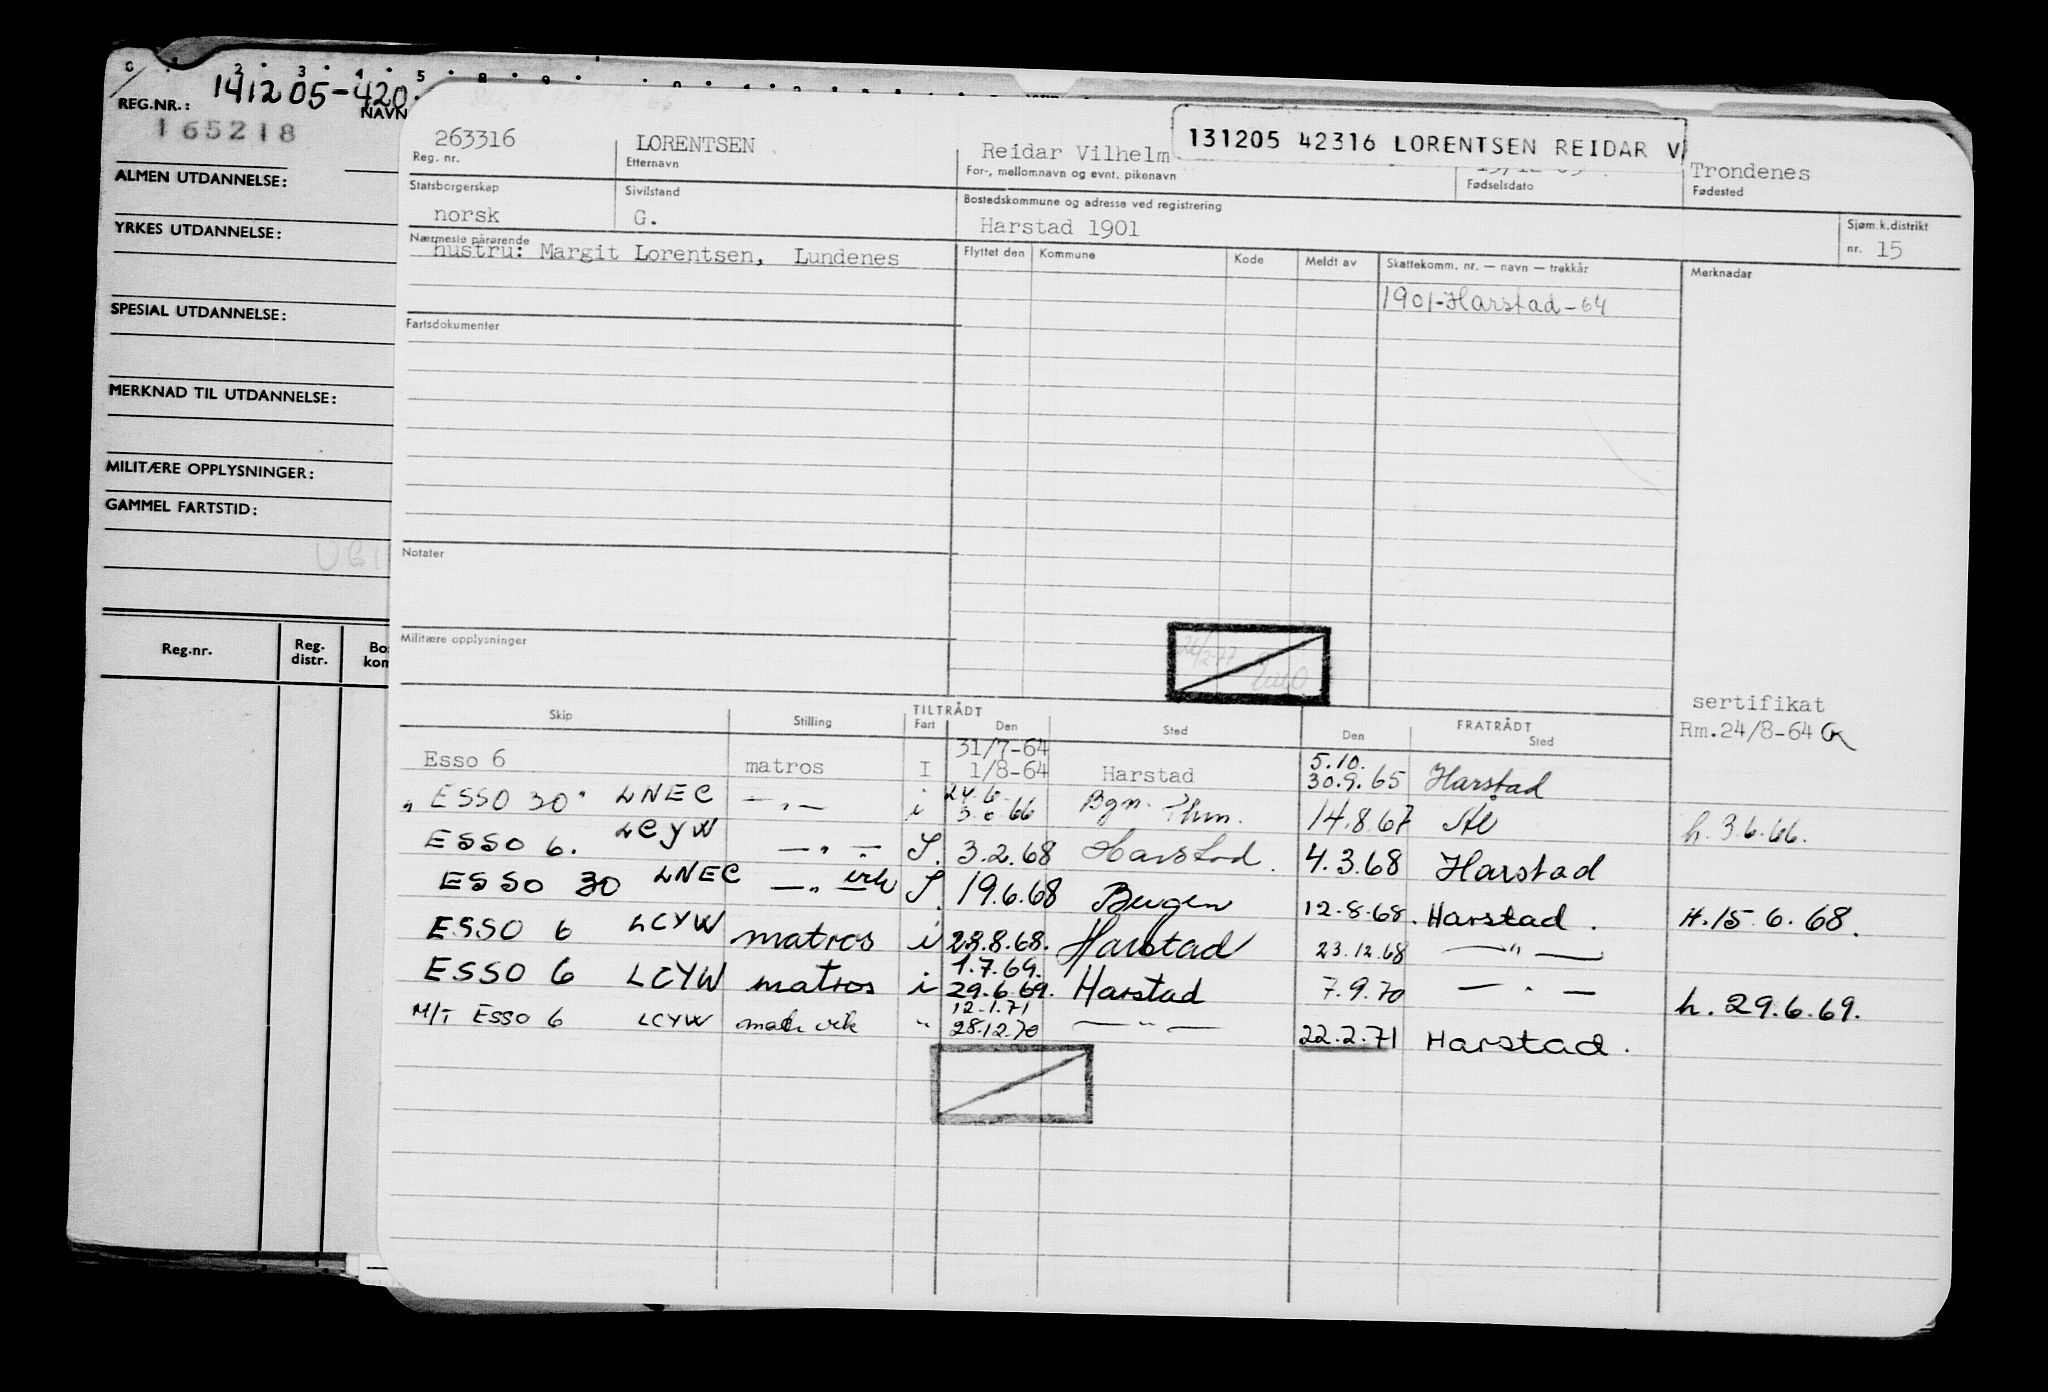 REG.NR.: 141205-420.
NAVN
165218
ALMEN UTDANNELSE:
YRKES UTDANNELSE:
SPESIAL UTDANNELSE:
MERKNAD TIL UTDANNELSE:
MILITÆRE OPPLYSNINGER:
GAMMEL FARTSTID:
Reg.nr. Reg. distr.
263316 LORENTSEN Reidar Vilhelm 131205 42316 LORENTSEN REIDAR V Trondenes
Reg. nr. Etternavn For-, mellomnavn og evnt. pikenavn Fødselsdato Fødested
Statsborgerskap Sivilstand Bostedskommune og adresse ved registrering Sjøm.k.distrikt
norsk G. Harstad 1901 nr. 15
Nærmeste pårørende Flyttet den Kommune Kode Meldt av Skattekomm. nr. — navn — trekkår Merknadar
hustru: Margit Lorentsen, Lundenes
1901-Harstad-64
Fartsdokumenter
Notater
Militære opplysninger
sertifikat
Rm.24/8-64
Skip Stilling TILTRÅDT Fart Den Sted FRATRÅDT Den Sted
31/7-64 5.10.
Esso 6 matros I 1/8-64 Harstad 30.9.65 Harstad
24.6
" ESSO 30" LNEC —"— i 3.6.66 Bgn. 14.8.67 h. 3.6.66.
ESSO 6. LCYW —"— S. 3.2.68 Harstad. 4.3.68 Harstad
ESSO 30 LNEC —"— S. 19.6.68 Bergen 12.8.68. Harstad. H.15.6.68.
ESSO 6 LCYW matros i 28.8.68. Harstad 23.12.68 —"—
1.7.69.
ESSO 6 LCYW matros i 29.6.69. Harstad 7.9.70 —"— h. 29.6.69.
12.1.71
M/T ESSO 6 LCYW " 28.12.70 —"— 22.2.71 Harstad.